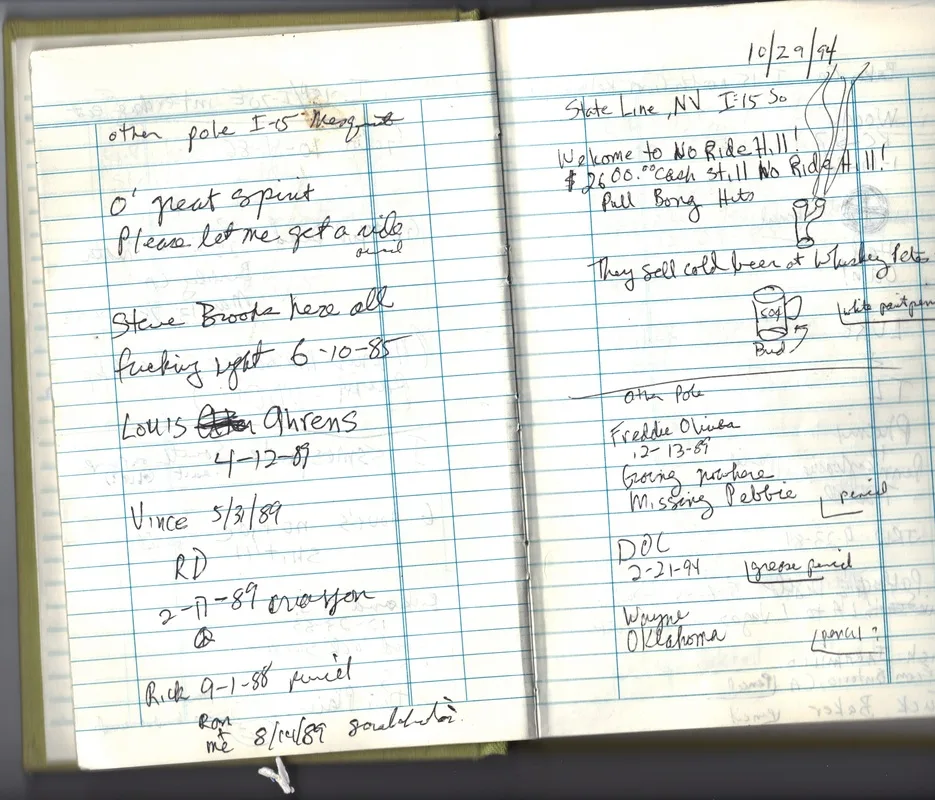 other pole I-15 Mesquite
O' great spirit
Please let me get a ride
Steve Brooks here all
fucking right 6-10-85
Louis Ahrens
4-12-89
Vince 5/31/89
RD
2-17-89 crayon
Rick 9-1-88 pencil
Ron
+
me 8/14/89
10/29/94
State Line, NV I-15 So
Welcome to No Ride Hill!
$2600.00 cash still No Ride Hill!
Pull Bong Hits
They sell cold beer at Whiskey Petes
50¢
white paint pen
Bud
Other Pole
Freddie
12-13-89
Going nowhere
Missing Debbie
pencil
DOC
2-21-94 grease pencil
Wayne
Oklahoma
pencil ?